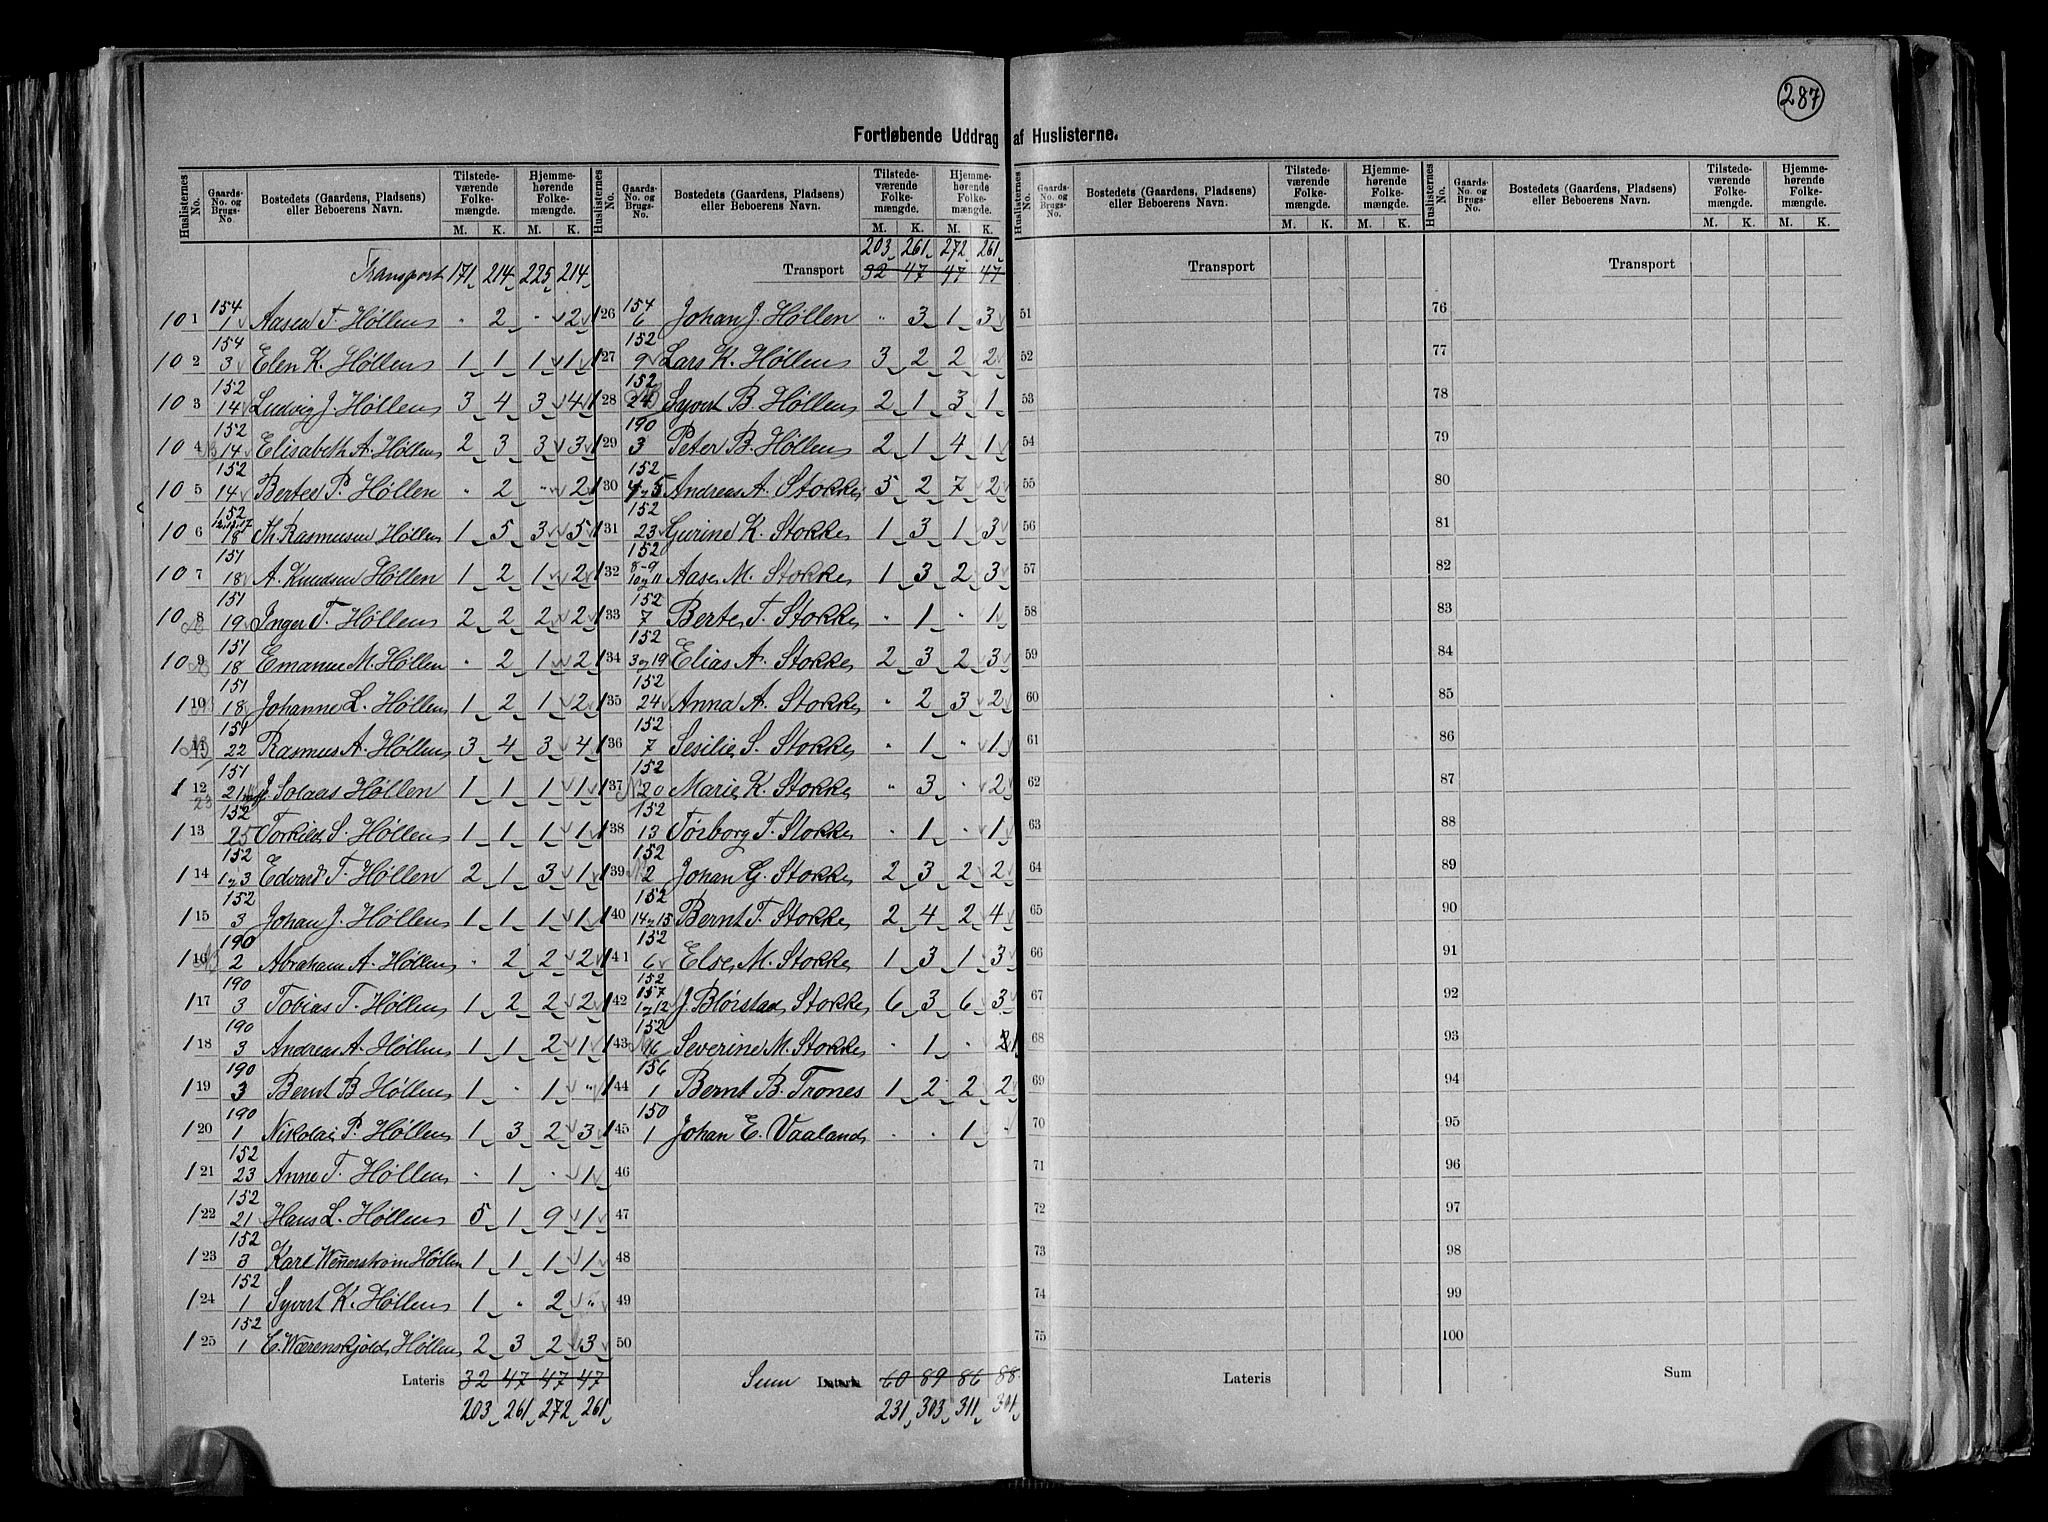 287
Fortløbende Uddrag af Huslisterne.
Huslisternes No. Gaards-No. og Brugs-No. Bostedets (Gaardens, Pladsens) eller Beboerens Navn. Tilstedeværende Folkemængde. M. K. Hjemmehørende Folkemængde. M. K.
Transport 171 214 225 214
101 154 1 Aasea T. Høllen " 2 " 2
102 154 3 Elen K. Høllen 1 1 1 1
103 152 14 Ludvig J. Høllen 3 4 3 4
104 152 14 Elisabeth A. Høllen 2 3 3 3
105 152 14 Bertea P. Høllen " 2 " 2
106 152 18 Th. Rasmusen Høllen 1 5 3 5
107 151 18 A. Knudsen Høllen 1 2 1 2
108 151 19 Inger T. Høllen 2 2 2 2
109 151 18 Emanue M. Høllen " 2 1 2
110 151 18 Johanne L. Høllen 1 2 1 2
111 151 22 Rasmus A. Høllen 3 4 3 4
112 151 21 J. Solaas Høllen 1 1 1 1
23
113 152 25 Torkild S. Høllen 1 1 1 1
114 152 1 og 3 Edvard T. Høllen 2 1 3 1
115 152 3 Johan J. Høllen 1 1 1 1
116 190 2 Abraham A. Høllen " 2 2 2
117 190 3 Tobias T. Høllen 1 2 2 2
118 190 3 Andreas A. Høllen 1 1 2 1
119 190 3 Bernt B Høllen 1 " 1 "
120 190 1 Nikolai P. Høllen 1 3 2 3
121 152 23 Anne T. Høllen " 1 " 1
122 152 21 Hans L. Høllen 5 1 9 1
123 152 3 Karl Wennerstrøm Høllen 1 1 1 1
124 152 1 Syvert K. Høllen 1 " 2 "
125 152 1 E. Wærenskjold Høllen 2 3 2 3
Lateris 32 47 47 47
203 261 272 261
Huslisternes No. Gaards-No. og Brugs-No. Bostedets (Gaardens, Pladsens) eller Beboerens Navn. Tilstedeværende Folkemængde. M. K. Hjemmehørende Folkemængde. M. K.
203 261 272 261
Transport 32 47 47 47
126 154 6 Johan J. Høllen " 3 1 3
127 152 9 Lars K. Høllen 3 2 2 2
128 152 24 Syvert B. Høllen 2 1 3 1
129 190 3 Peter B. Høllen 2 1 4 1
130 152 4 og 5 Andreas A. Stokke 5 2 7 2
131 152 23 Gurine K. Stokke 1 3 1 3
132 152 8-9 10 og 11 Aase M. Stokke 1 3 2 3
133 152 7 Berte T. Stokke " 1 " 1
134 152 3 og 19 Elias A. Stokke 2 3 2 3
135 152 24 Anna A. Stokke " 2 3 2
136 152 7 Sesilie S. Stokke " 1 " 1
137 152 20 Marie K. Stokke " 3 " 2
138 152 13 Torborg T. Stokke " 1 " 1
139 152 2 Johan G. Stokke 2 3 2 2
140 152 14 og 15 Bernt T. Stokke 2 4 2 4
141 152 6 Else M. Stokke 1 3 1 3
142 152 157 1 og 12 J. Blørstad Stokke 6 3 6 3
143 152 16 Severine M. Stokke " 1 " 1
144 156 1 Bernt B. Trones 1 2 2 2
145 150 1 Johan E. Vaaland " " 1 "
46
47
48
49
50
Sum Lateris 60 89 86 88
231 303 311 301
Huslisternes No. Gaards-No. og Brugs-No. Bostedets (Gaardens, Pladsens) eller Beboerens Navn. Tilstedeværende Folkemængde. M. K. Hjemmehørende Folkemængde. M. K.
Transport
51
52
53
54
55
56
57
58
59
60
61
62
63
64
65
66
67
68
69
70
71
72
73
74
75
Lateris
Huslisternes No. Gaards-No. og Brugs-No. Bostedets (Gaardens, Pladsens) eller Beboerens Navn. Tilstedeværende Folkemængde. M. K. Hjemmehørende Folkemængde. M. K.
Transport
76
77
78
79
80
81
82
83
84
85
86
87
88
89
90
91
92
93
94
95
96
97
98
99
100
Sum